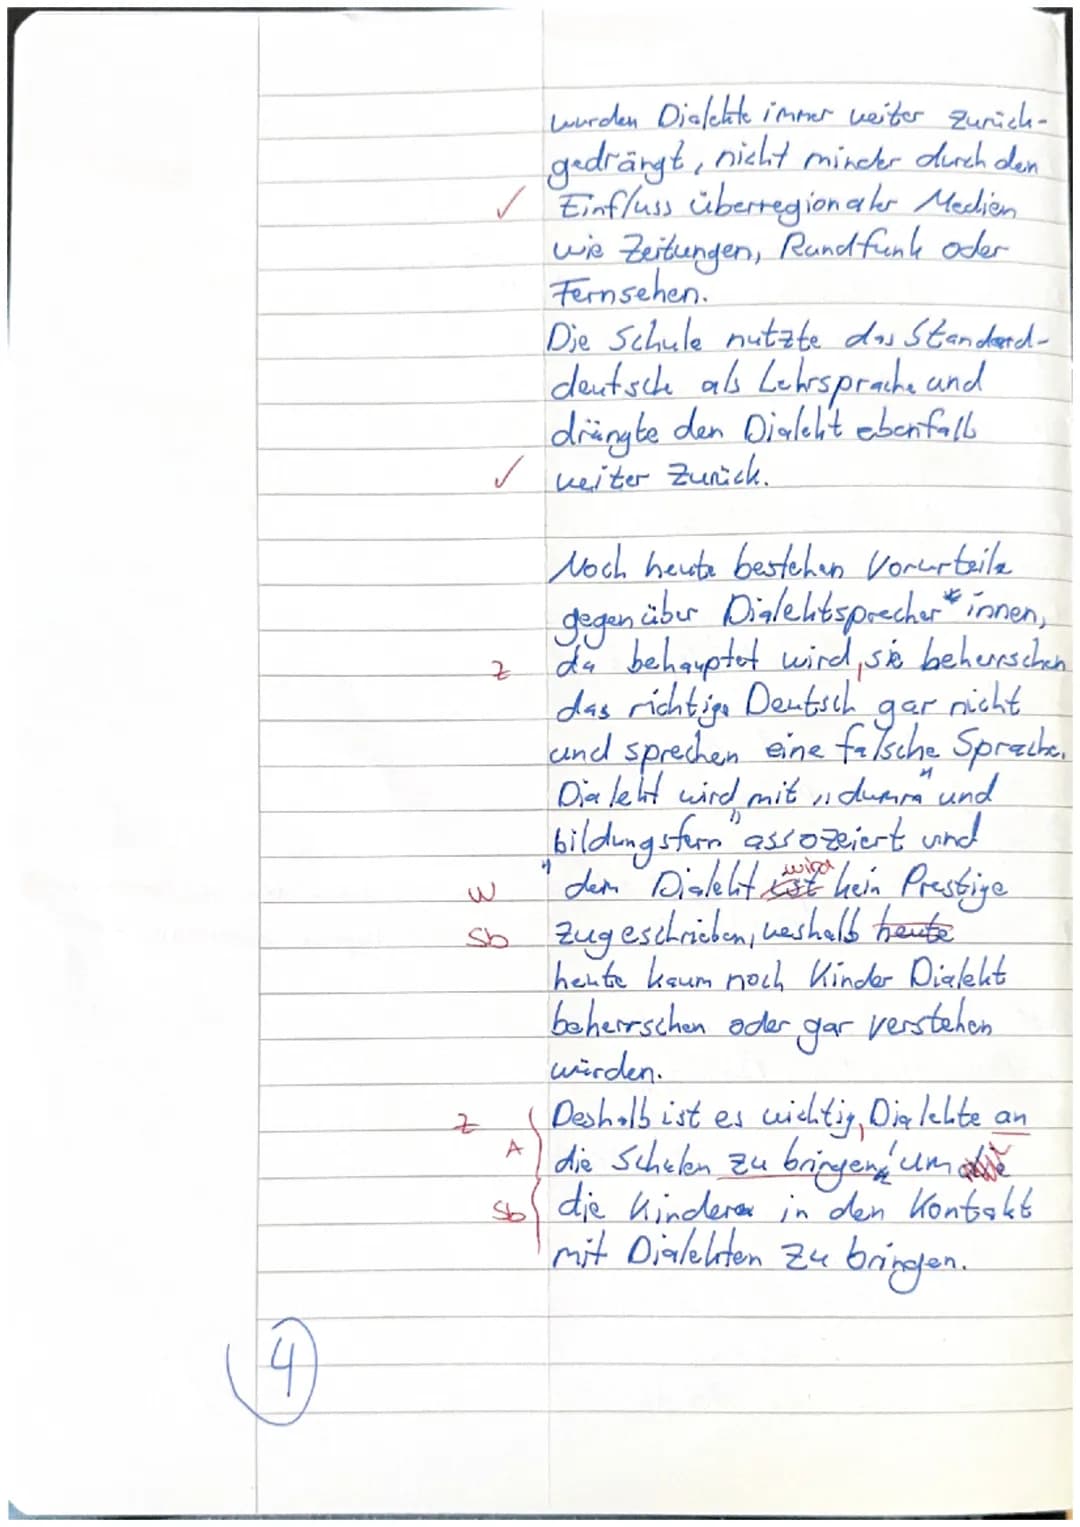 wurden Dialekte immer weiter zurück-
gedrängt, nicht minder durch den
✓ Einfluss überregionaler Medien
wie Zeitungen, Rundfunk oder
Fernsehen.
Die Schule nutzte das Standard-
deutsch als Lehrsprache und
drängte den Dialekt ebenfalls
✓ weiter zurück.
Noch heute bestehen Vorurteile
gegenüber Dialektsprecher*innen,
Z da behauptet wird, sie beherrschen
das richtige Deutsch gar nicht
und sprechen eine falsche Sprache.
Dialekt wird mit „dumm" und
„bildungsfern" assozeiert und
W dem Dialekt ist wird kein Prestige
Sb zugeschrieben, weshalb heute
heute kaum noch Kinder Dialekt
beherrschen oder gar verstehen
würden.
Z Deshalb ist es wichtig, Dialekte an
A die Schulen zu bringen, um
Sb die Kinder in den Kontakt
mit Dialekten zu bringen.
4